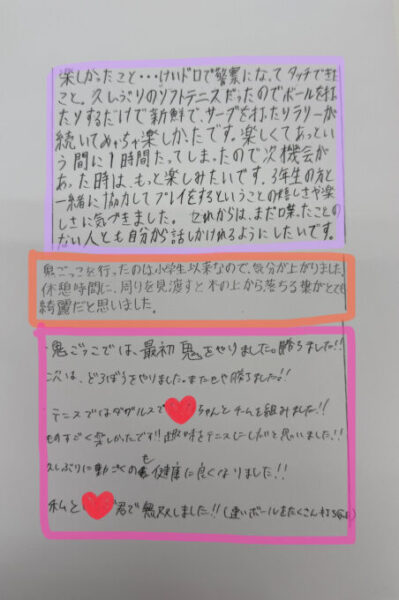 楽しかったこと・・・けいドロで警察になってタッチできた
こと。久しぶりのソフトテニスだったのでボールを打っ
たりするだけで新鮮で、サーブを打ったりラリーが
続いてめっちゃ楽しかったです。楽しくてあっとい
う間に1時間たってしまったので次機会が
あった時は、もっと楽しみたいです。3年生の方と
一緒に協力してプレイをするということの嬉しさや楽
しさに気づきました。これからは、まだ喋ったことの
ない人とも自分から話しかけれるようにしたいです。
鬼ごっこを行ったのは小学生以来なので、気分が上がりました。
休憩時間に、周りを見渡すと木の上から落ちる葉がとても
綺麗だと思いました。
鬼ごっこでは、最初鬼をやりました。勝ちました!!
次は、どろぼうをやりました。またもや勝ちました。!!
テニスではダブルスで ちゃんとチームを組みました!!
ものすごく楽しかったです!! 趣味をテニスにしだと思いました!!
久しぶりに動ごくのも健康に良くなりました!!
私と 君で無双しました!!(速いボールをたくさん